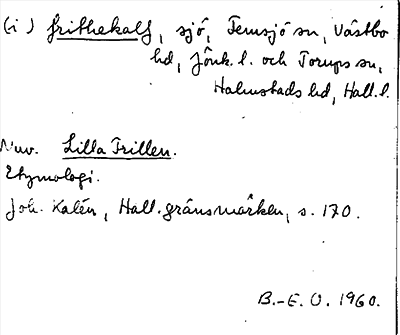 (i) frithekalf, sjö, Femsjö sn, Västbo
hd, Jönk. l. och Torups sn,
Halmstads hd, Hall. l.
Nuv. Lilla Frillen.
Etymologi.
Joh. Kalén, Hall. gränsmärken, s. 170.
B.-E. O. 1960.